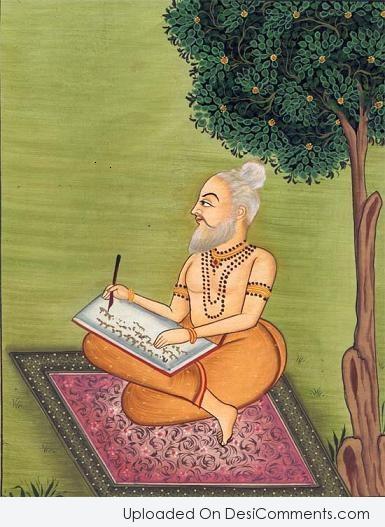 Uploaded On DesiComments.com